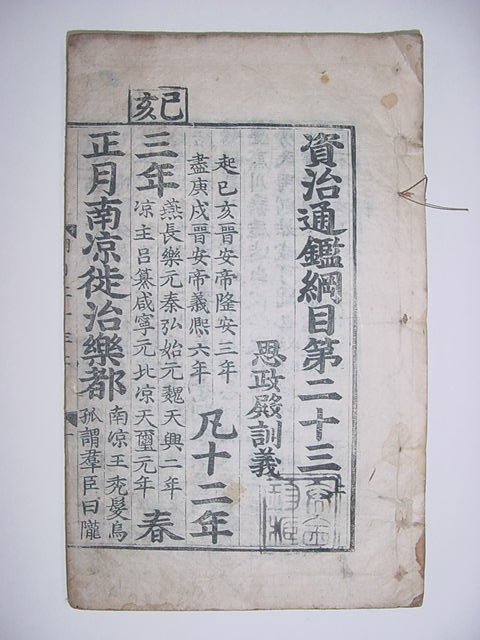 資治通鑑綱目第二十三上
思政殿訓義
起己亥晉安帝隆安三年
盡庚戌晉安帝義熙六年
凡十二年
己亥
三年
燕長樂元秦弘始元魏天興二年
凉主呂纂咸寧元北凉天璽元年
春
正月南凉徙治樂都
南凉王禿髮烏
孤謂羣臣曰隴